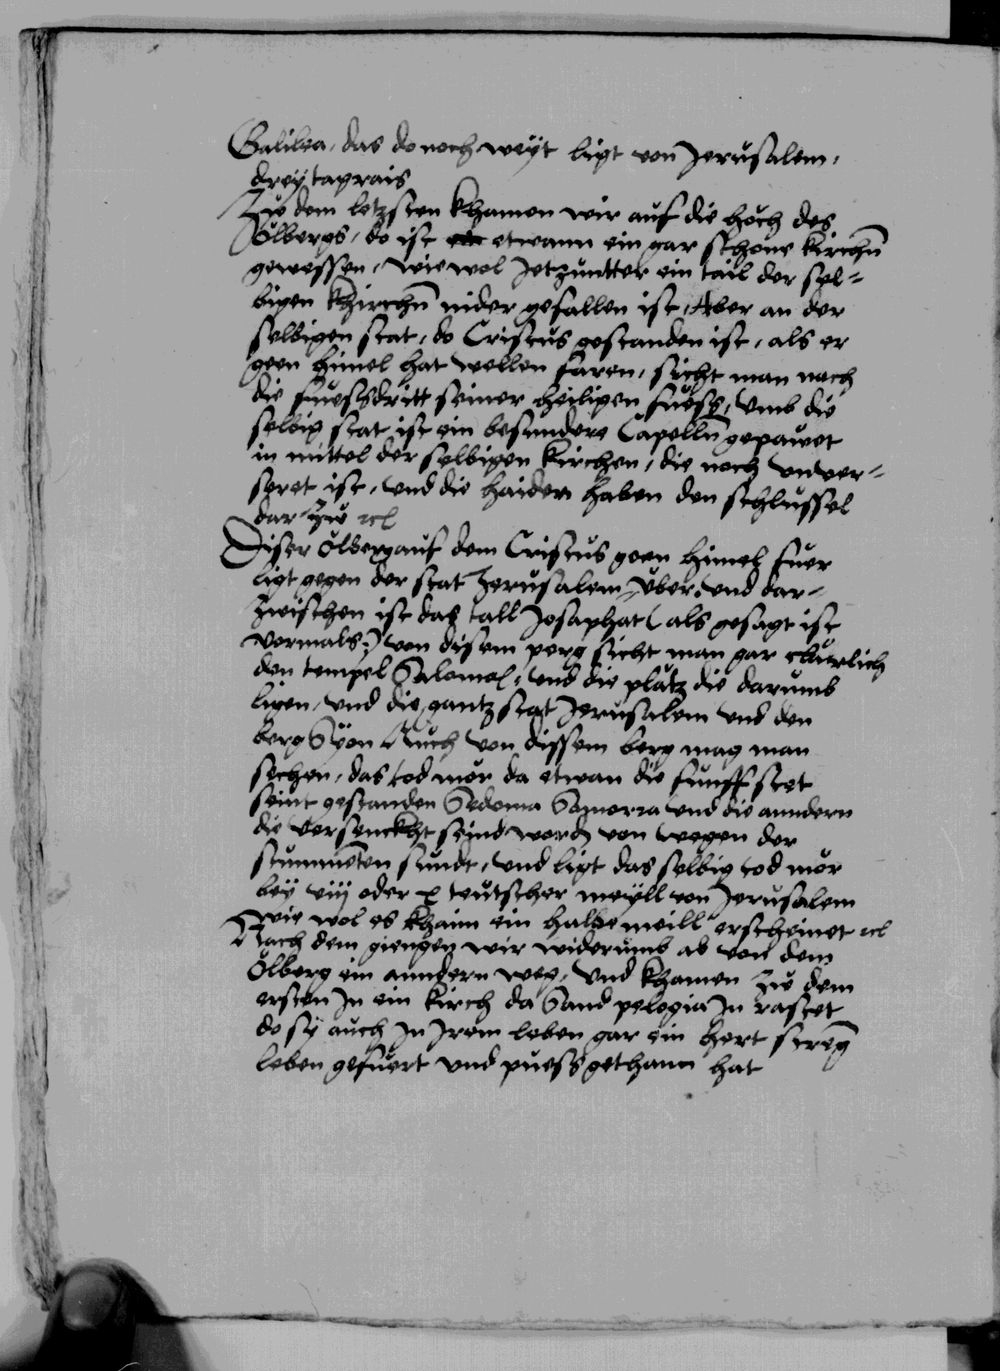 Galilea, das do noch weÿt ligt von Jerusalem,
dreÿ tagrais
Zw dem letzsten khamen wir auf die höch des
Ölbergs, do ist etwann ein gar schone kirchn̄
gewessen, wie wol Jetzuntter ein tail der sel=
bigen khirchn̄ nider gefallen ist, Aber an der
selbigen stat, do Cristus gestanden ist, als er
geen himel hat wellen faren, sicht man noch
die fuessdritt seiner heiligen füess, vmb die
selbig stat ist ein besundere Capelln̄ gepawet
in mittel der selbigen kirchen, die noch vnver=
seret ist, vnd die haiden haben den schlussel
dar zw rcl
Diser ölberg auf dem Cristus geen himel fuer
ligt gegen der stat Jerusalem vber, vnd dar=
zwischen ist das tall Josaphat (als gesagt ist
vormals:) von disem perg sicht man gar clärlich
den tempel Salomo[n], vnd die plätz die darumb
ligen, vnd die gantz stat Jerusalem vnd den
berg Sÿon Auch von dissem berg mag man
sechen, das tod mör da etwan die funff stet
seint gestanden Sodoma Gomorra vnd die anndern
die versenckht seind word[en] von wegen der
stummeten sundt, vnd ligt das selbig tod mör
beÿ viij oder x teutscher meÿll von Jerusalem
wie wol es khaim ein halbe meill erscheinet rcl
Nach dem giengen wir widerumb ab von dem
Ölberg ein anndern weg, vnd khamen zw dem
ersten Jn ein kirch da Sand pelogia Jn rastet
do sÿ auch Jn Jrem leben gar ein hert streng
leben gefuert vnd puess gethann hat